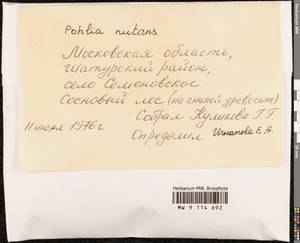 Pohlia nutans
Московская область,
Шатурский район,
село Семеновское.
Сосновый лес (на гнилой древесине)
Собрал Куликова Г.Г.
11 июля 1976 г
Определил Игнатова Е.А.
Herbarium MW, Bryophyta
MW 9 114 692